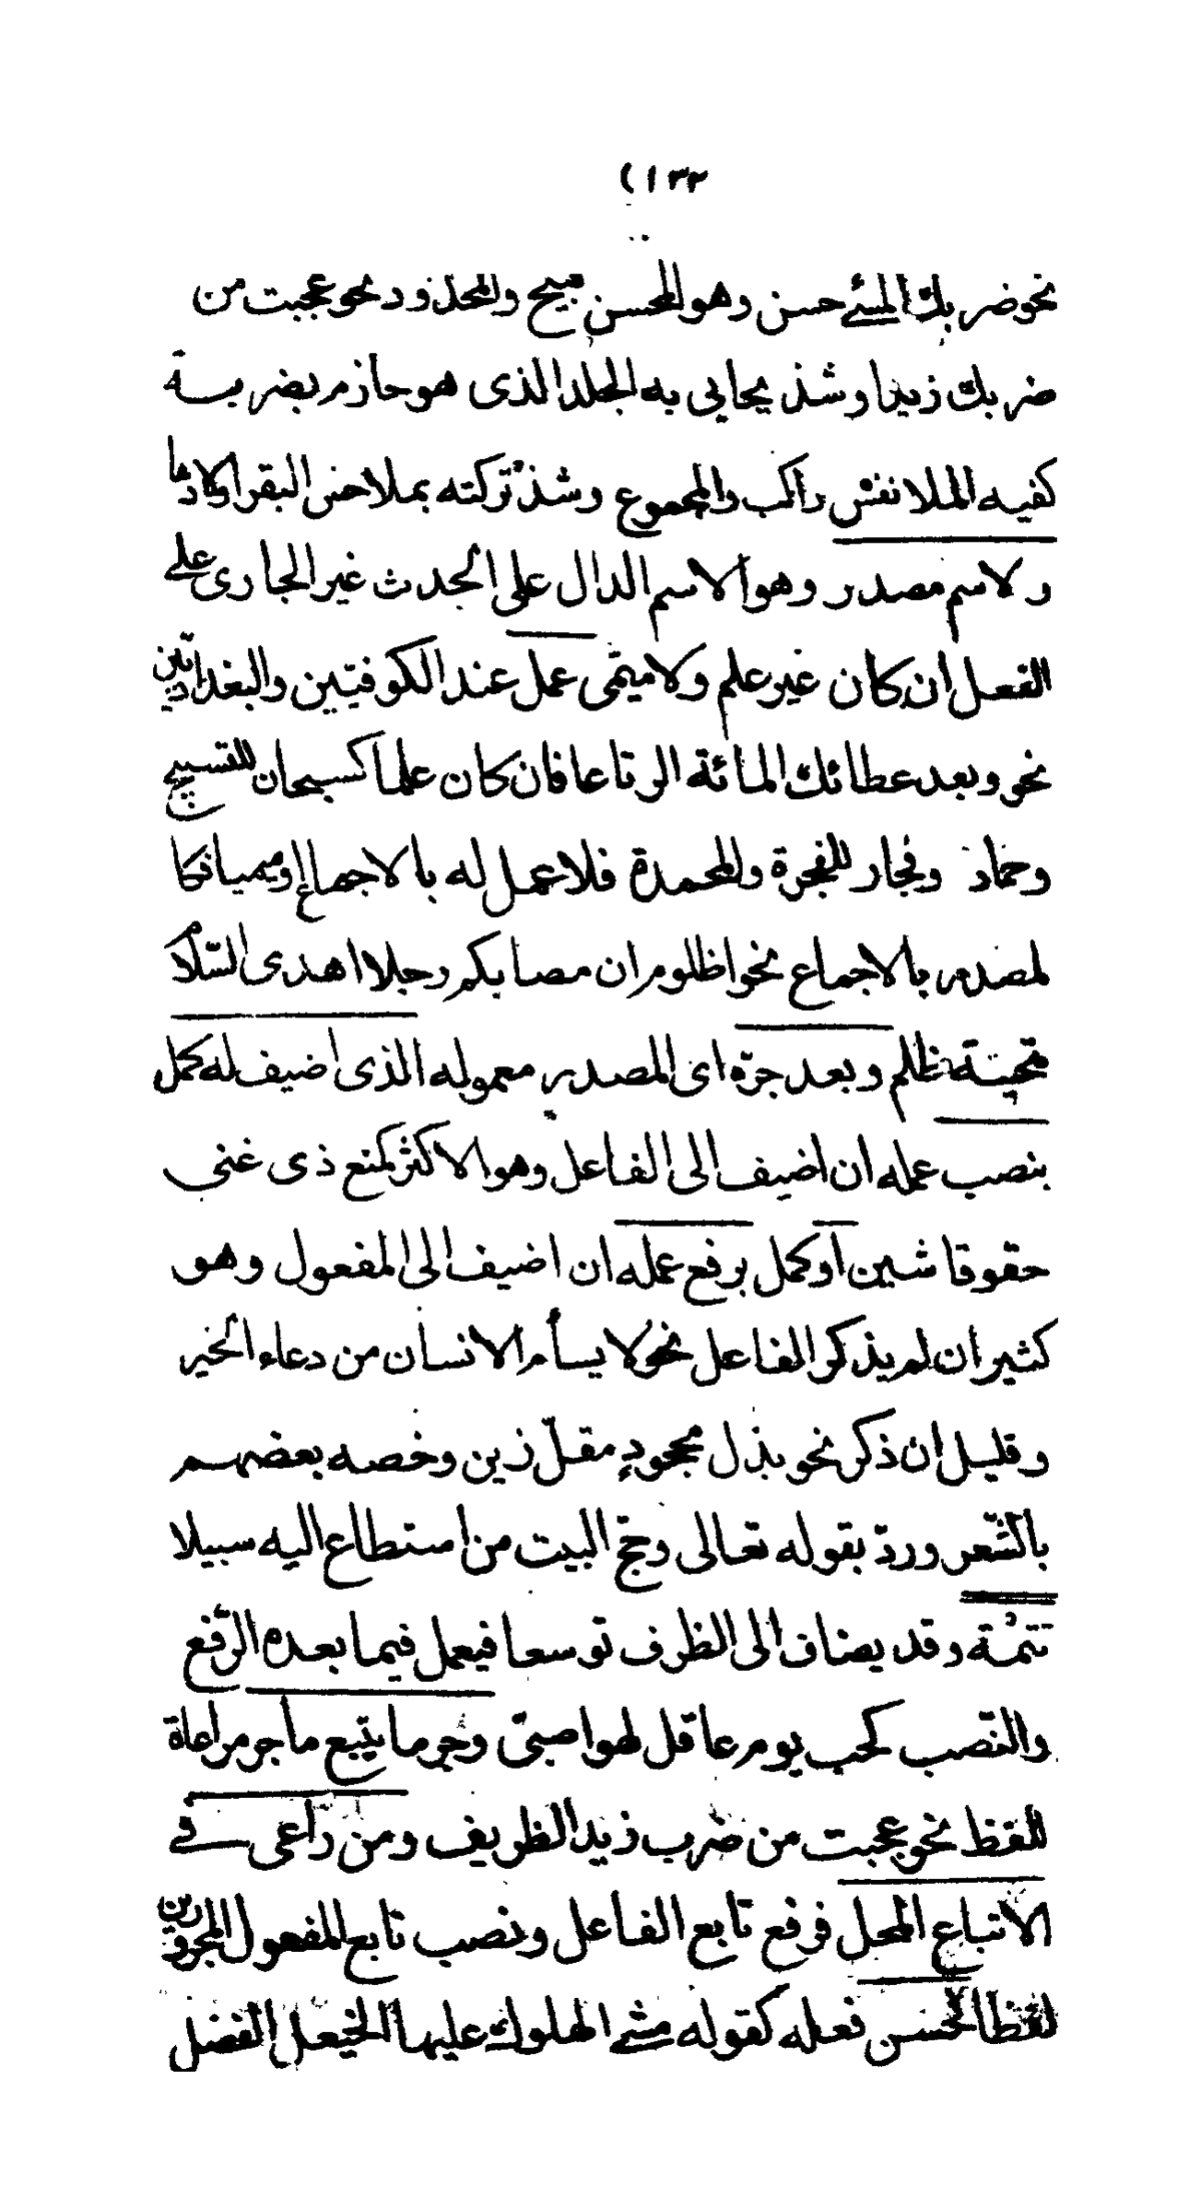 (١٣٢
نحو ضربك المسئ حسن وهو المحسن قبيح والمحذود نحو عجبت من
ضربك زيدا وشذ يحايى به الجلد الذى هو حازم بضربة
كفيه الملا نفس راكب والمجموع وشذ تركته بملاحس البقر اولادها
ولاسم مصدر وهو الاسم الدال على الحدث غير الجارى على
الفعل ان كان غير علم ولا ميمى عمل عند الكوفيين والبغداديين
نحو وبعد عطائك المائة الرتاعا فان كان علما كسبحان للتسبيح
وحماد وفجار للفجرة والمحمدة فلا عمل له بالاجماع او ميميا فكا
لمصدر بالاجماع نحو اظلوم ان مصابكم رجلا اهدى السّلام
تحيّة ظلم وبعد جرّه اى المصدر معموله الذى اضيف له كمل
بنصب عمله ان اضيف الى الفاعل وهو الاكثر كمنع ذى غنى
حقوقا شين او كمل برفع عمله ان اضيف الى المفعول وهو
كثير ان لم يذكر الفاعل نحو لا يسأم الانسان من دعاء الخير
وقليل ان ذكر نحو بذل مجهودٍ مقلّ زين وخصه بعضهم
بالشّعر وردّ بقوله تعالى وحج البيت من استطاع اليه سبيلا
تتمّة وقد يضاف الى الظرف توسعا فيعمل فيما بعده الرّفع
والنّصب كحب يوم عاقل لهوا صبىّ وجر ما يتبع ما جر مراعاة
للفظ نحو عجبت من ضرب زيد الظريف ومن راعى فى
الاتباع المحل فرفع تابع الفاعل ونصب تابع المفعول المجرورين
لفظا فحسن فعله كقوله مشى الهلوك عليها الخيعل الفضل